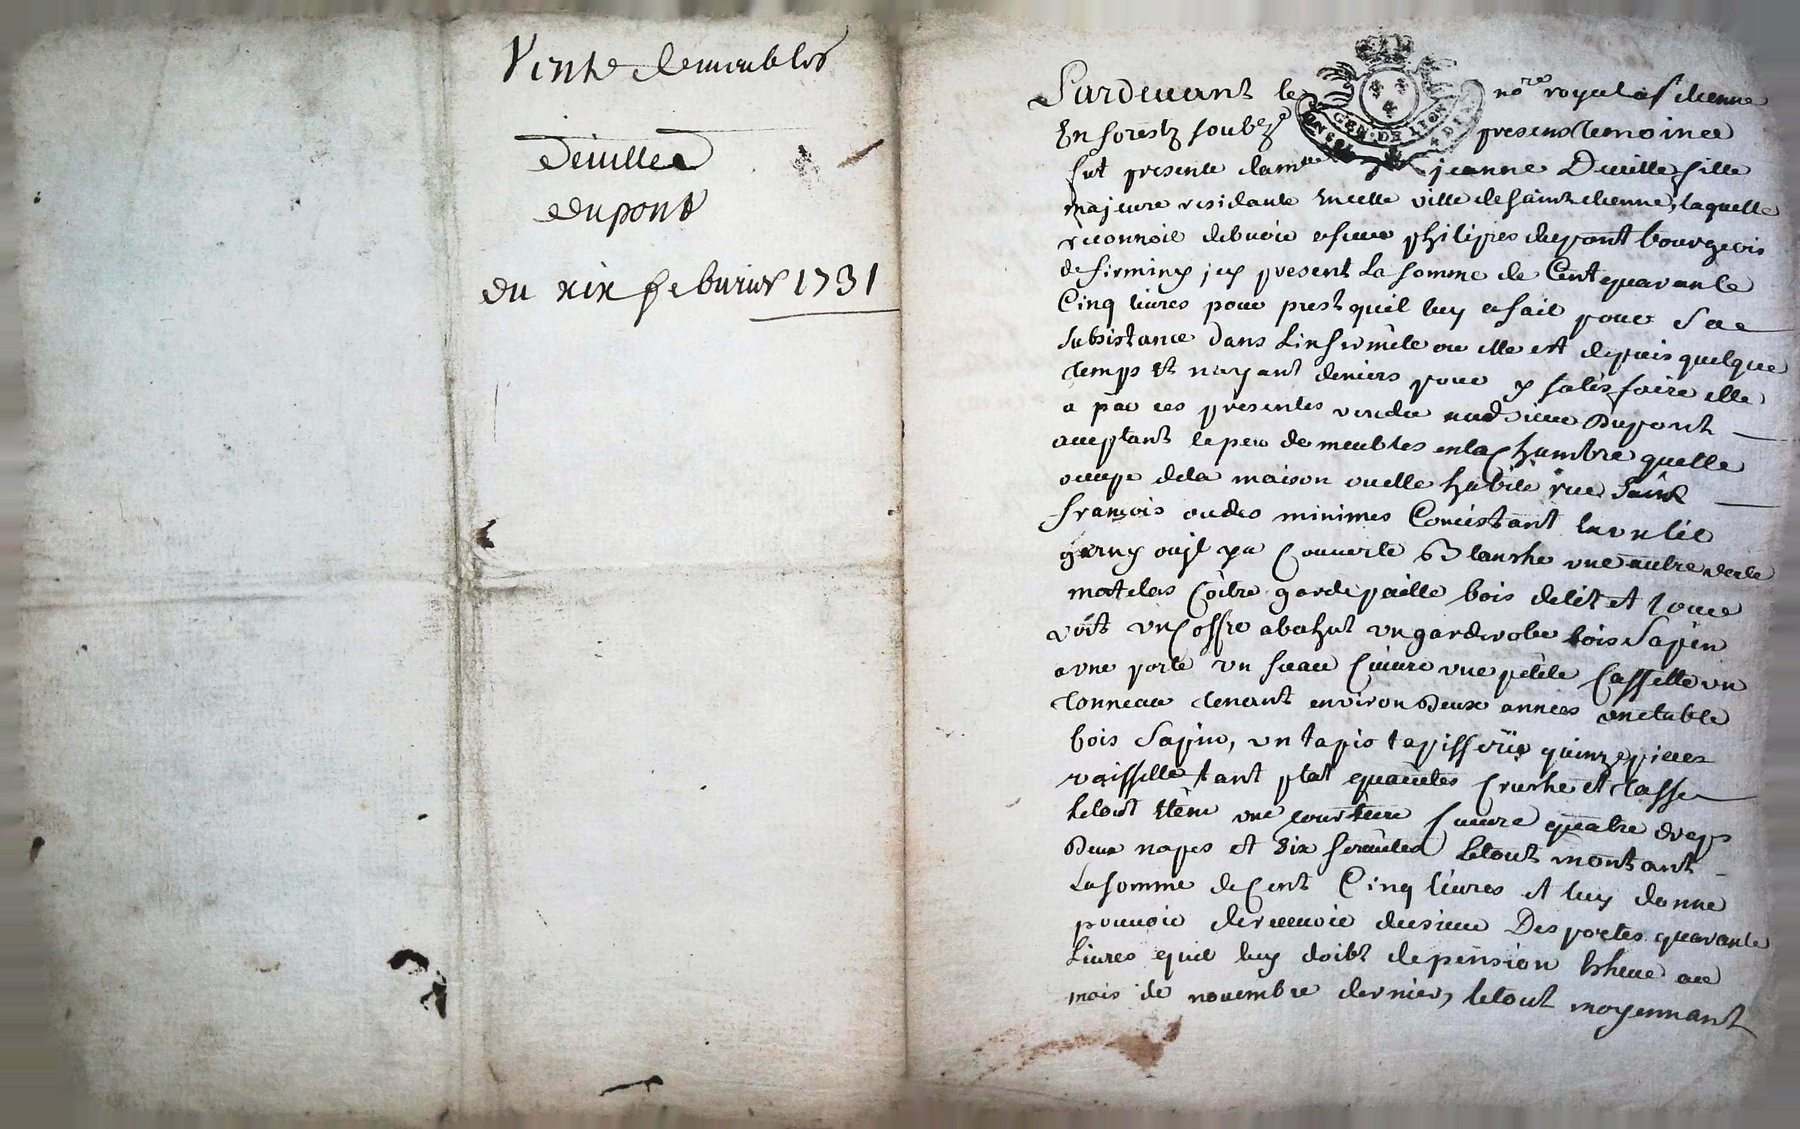 Vente de meubles
deville a
dupont
du xix febvrier 1731
GEN. DE LION
Pardevant le no.re royal a st etienne
En forestz soub.ne presens temoince
fut presente dam.lle jeanne Deville fille
majeure residante en cette ville de saint etienne, laquelle
reconnoit debvoir a sieur philipes dupont bourgeois
de firminy jcy present La somme de Cent quarante
Cinq livres pour prest quil luy a fait pour sa
subsistance dans Linfirmite ou elle est depuis quelque
temps Et nayant deniers pour y satisfaire elle
a par ces presentes vendu aud sieur Dupont
acceptant le peu de meubles en la Chambre quelle
occupe de la maison ou elle habite rue Saint
françois ou des minimes Consistant En un lit
garny ou jl y a Couverte Blanche une autre verte
matelas Coitre garde paille bois de lit et Tour
un Coffre abahut un garderobe bois Sapin
a une porte un seau Cuivre une petite Cassette un
tonneau tenant environ Deux annees une table
bois Sapin, un tapis tapisserie quinze pieces
vaisselle tant plat Cruche et tasse
le tout une Cuivre quatre draps
Deux napes et Six serviettes Le tout montant
La somme de Cent Cinq livres et luy donne
pouvoir de recevoir du sieur Desportes quarante
Livres quil luy doibt de pension Escheue au
mois de novembre dernier, le tout moyennant